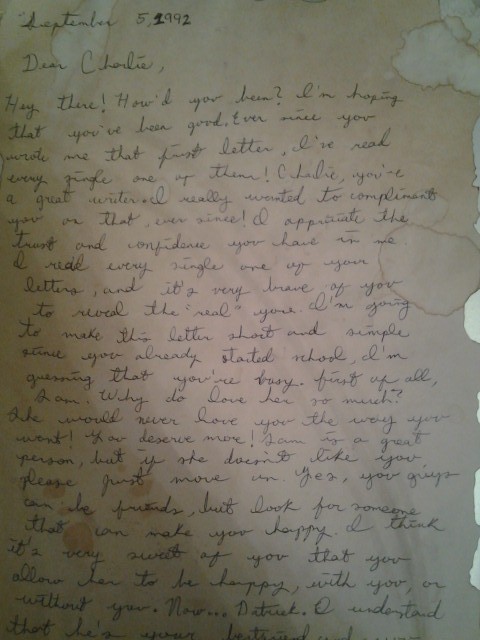 September 5, 1992
Dear Charlie,
Hey there! How'd you been? I'm hoping
that you've been good. Ever since you
wrote me that first letter, I've read
every single one of them! Charlie, you're
a great writer. I really wanted to compliment
you on that, ever since! I appriciate the
trust and confidence you have in me.
I read every single one of your
letters, and it's very brave of you
to reveal the "real" you. I'm going
to make this letter short and simple
since you already started school, I'm
guessing that you're busy. First of all,
Sam. Why do love her so much?
She would never love you the way you
want! You deserve more! Sam is a great
person, but if she doesn't like you
please just move on. Yes, you guys
can be friends, but look for someone
that can make you happy. I think
it's very sweet of you that you
allow her to be happy, with you, or
without you. Now... Patrick. I understand
that he's your bestfriend and